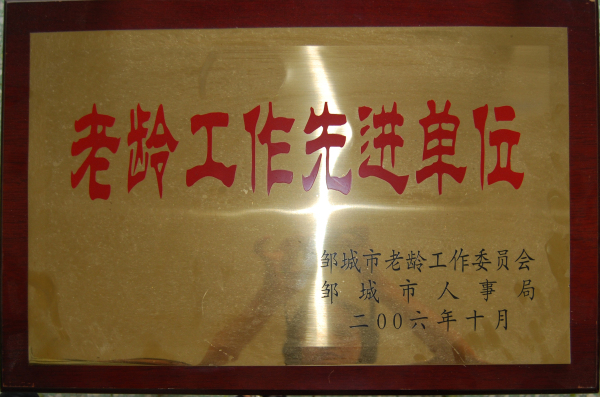 老龄工作先进单位
邹城市老龄工作委员会
邹城市人事局
二00六年十月